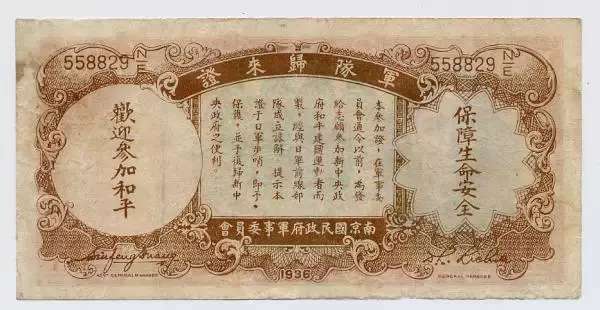 558829 N/E
軍隊歸來證
558829 N/E
保障生命安全
本參加證，在軍事委
員會通令以前，為發
給志願參加新中央政
府和平建國運動者而
製，經與日軍前線部
隊成立諒解，提示本
證于日軍步哨，即予
保護，並予復歸新中
央政府之便利。
歡迎參加和平
南京國民政府軍事委員會
ASST GENERAL MANAGER
1936
GENERAL MANAGER